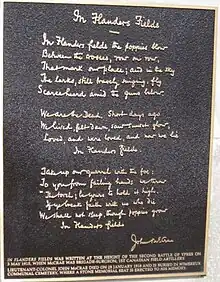 In Flanders Fields
In Flanders fields the poppies blow
Between the crosses, row on row,
That mark our place; and in the sky
The larks, still bravely singing, fly
Scarce heard amid the guns below.
We are the Dead. Short days ago
We lived, felt dawn, saw sunset glow,
Loved, and were loved, and now we lie
In Flanders fields
Take up our quarrel with the foe:
To you from failing hands we throw
The torch; be yours to hold it high.
If ye break faith with us who die
We shall not sleep, though poppies grow
In Flanders fields
John McCrae
IN FLANDERS FIELDS WAS WRITTEN AT THE HEIGHT OF THE SECOND BATTLE OF YPRES ON
3 MAY 1915, WHEN McCRAE WAS BRIGADE-SURGEON, 1ST CANADIAN FIELD ARTILLERY.
LIEUTENANT-COLONEL JOHN McCRAE DIED ON 28 JANUARY 1918 AND IS BURIED IN WIMEREUX
COMMUNAL CEMETERY, WHERE A STONE MEMORIAL SEAT IS ERECTED TO HIS MEMORY.